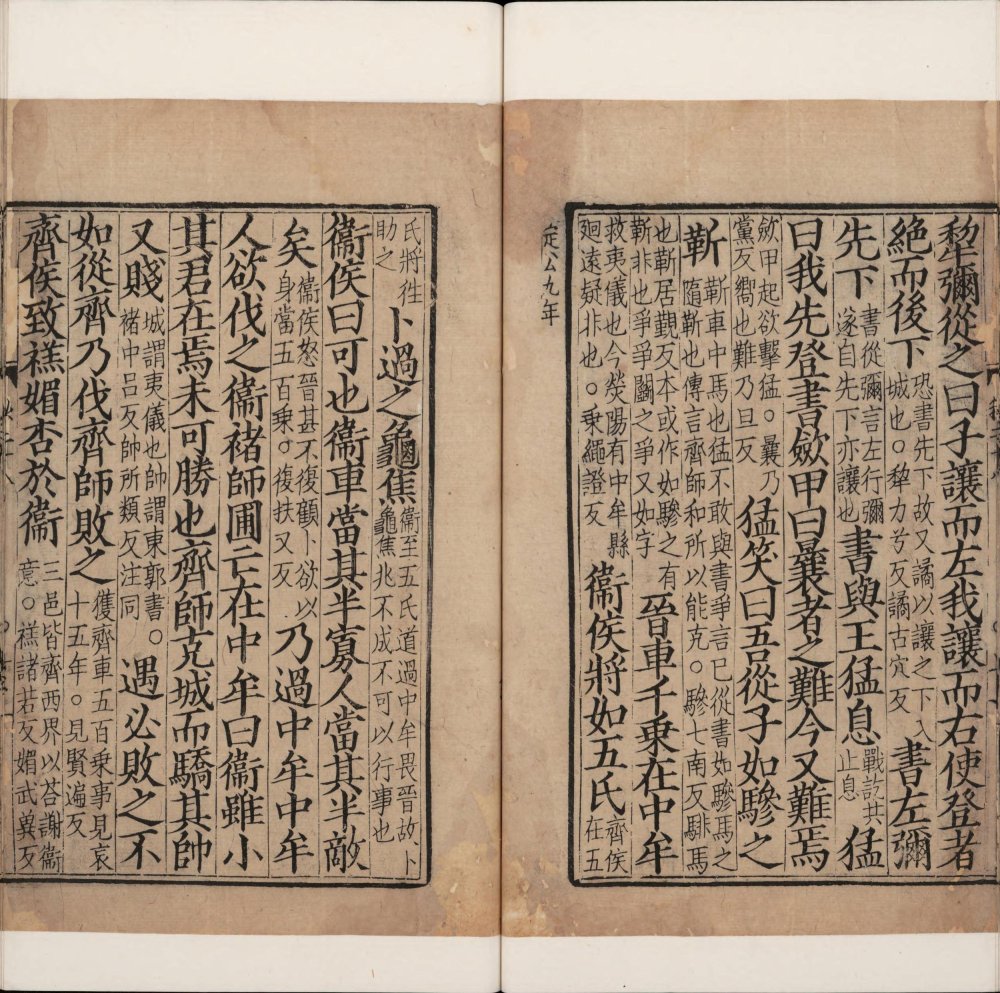 犂彌從之曰子讓而左我讓而右使登者
絶而後下恐書先下故又譎以讓之下入城也○犂力兮反譎古宂反書左彌
先下書從彌言左行彌遂自先下亦讓也書與王猛息戰訖共止息猛
曰我先登書斂甲曰曩者之難今又難焉
斂甲起欲擊猛○曩乃黨反嚮也難乃旦反猛笑曰吾從子如驂之
靳靳車中馬也猛不敢與書爭言已從書如驂馬之隨靳也傳言齊師和所以能克○驂七南反騑馬
也靳居覲反本或作如驂之有靳非也爭爭鬬之爭又如字晉車千乘在中牟
救夷儀也今熒陽有中牟縣迴遠疑非也○乘繩證反衞侯將如五氏齊侯在五
定公九年
氏將往助之卜過之龜焦衞至五氏道過中牟畏晉故卜龜焦兆不成不可以行事也
衞侯曰可也衞車當其半寡人當其半敵
矣衞侯怒晉甚不復顧卜欲以身當五百乘○復扶又反乃過中牟中牟
人欲伐之衞褚師圃亡在中牟曰衞雖小
其君在焉未可勝也齊師克城而驕其帥
又賤城謂夷儀也帥謂東郭書○褚中呂反帥所類反注同遇必敗之不
如從齊乃伐齊師敗之獲齊車五百乘事見哀十五年○見賢遍反
齊侯致禚媚杏於衞三邑皆齊西界以荅謝衞意○禚諸若反媚武冀反